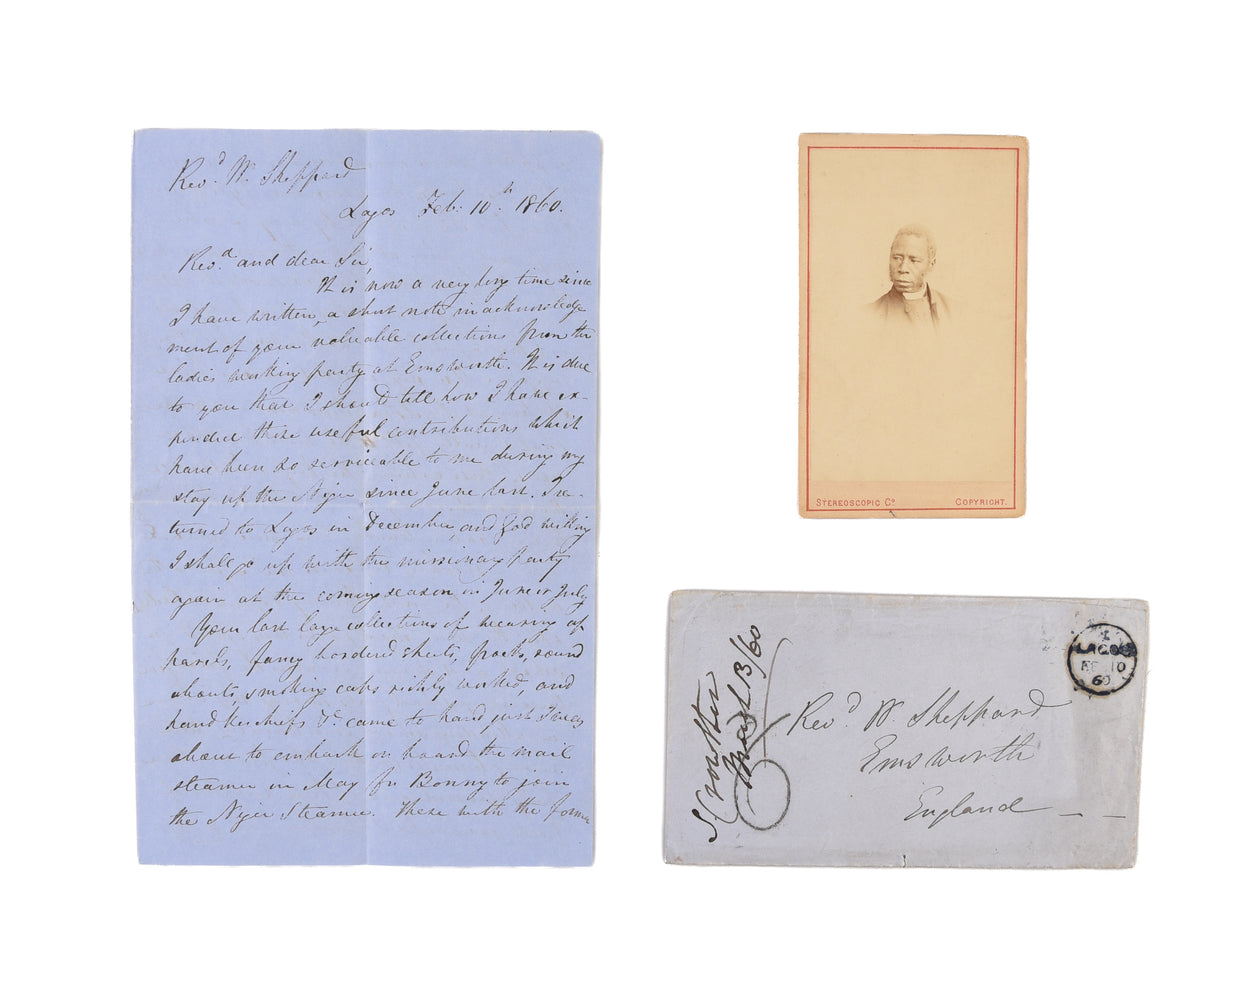 Rev.d W. Sheppard
Lagos Feb. 10.th 1860.
Rev.d and dear Sir,
It is now a very long time since
I have written, a short note in acknowledge
ment of your valuable collections from the
ladies working party at Emsworth. It is due
to you that I should tell how I have ex-
pended these useful contributions which
have been so serviceable to me during my
stay up the Niger since June last, I re-
turned to Lagos in December, and God willing
I shall go up with the missionary party
again at the coming season in June or July
Your last large collections of wearing ap
parels, fancy bordered sheets, frocks, round
abouts, smoking caps richly worked, and
handkerchiefs &c came to hand just I was
about to embark on board the mail
steamer in May for Bonny to join
the Niger Steamer. These with the former
STEREOSCOPIC Co. COPYRIGHT.
S Crowther
March 13/60
LAGOS
FE 10
60
Rev.d W. Sheppard
Emsworth
England